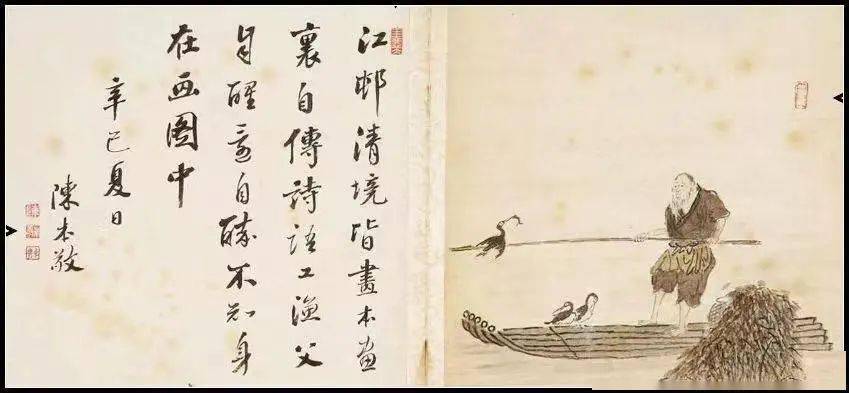 江邨清境皆畫本畫
裏自傳詩語工漁父
自醒還自醉不知身
在画圖中
辛巳夏日
陳本敬